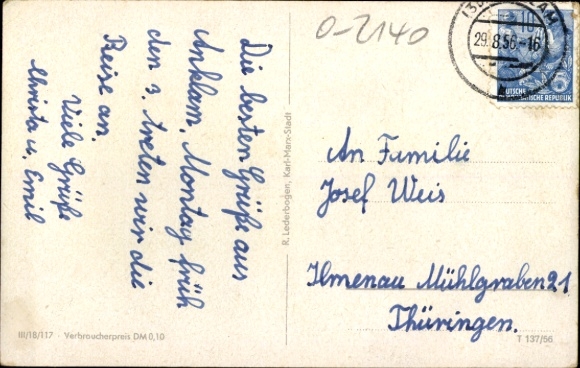 Die besten Grüße aus
Anklam, Montag früh
den 3. treten wir die
Reise an.
Viele Grüße
Christa u. Emil
III/18/117 · Verbraucherpreis DM 0,10
R. Lederbogen, Karl-Marx-Stadt
O-2140
29.8.56.-16
10
DEUTSCHE
DEMOKRATISCHE REPUBLIK
An Familie
Josef Weis
Ilmenau Mühlgraben 21
Thüringen.
T 137/56